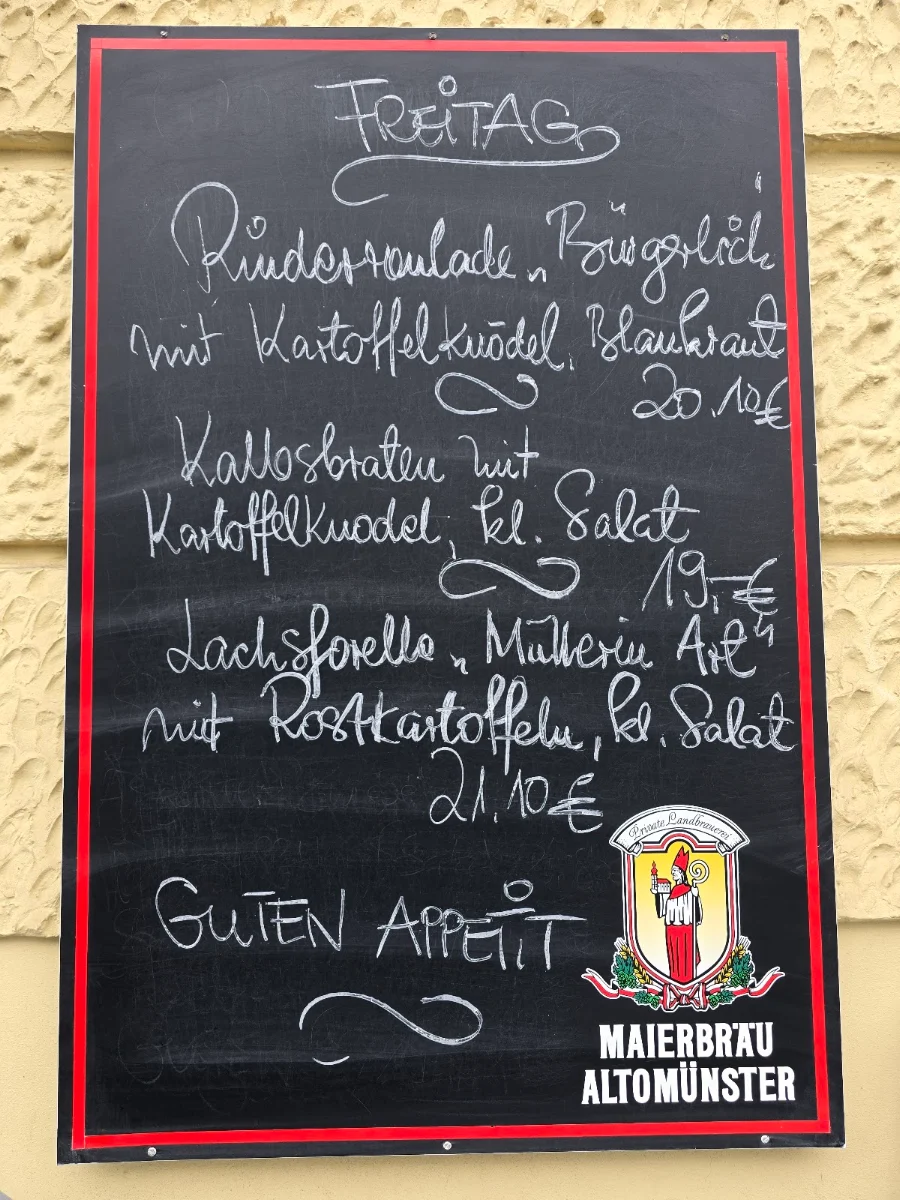 FREITAG
Rinderroulade „Bürgerlich“
mit Kartoffelknödel, Blaukraut
20.10€
Kallosbraten mit
Kartoffelknödel, kl. Salat
19,-€
Lachsforelle „Müllerin Art“
mit Röstkartoffeln, kl. Salat
21.10€
GUTEN APPETIT
Private Landbrauerei
MAIERBRÄU
ALTOMÜNSTER